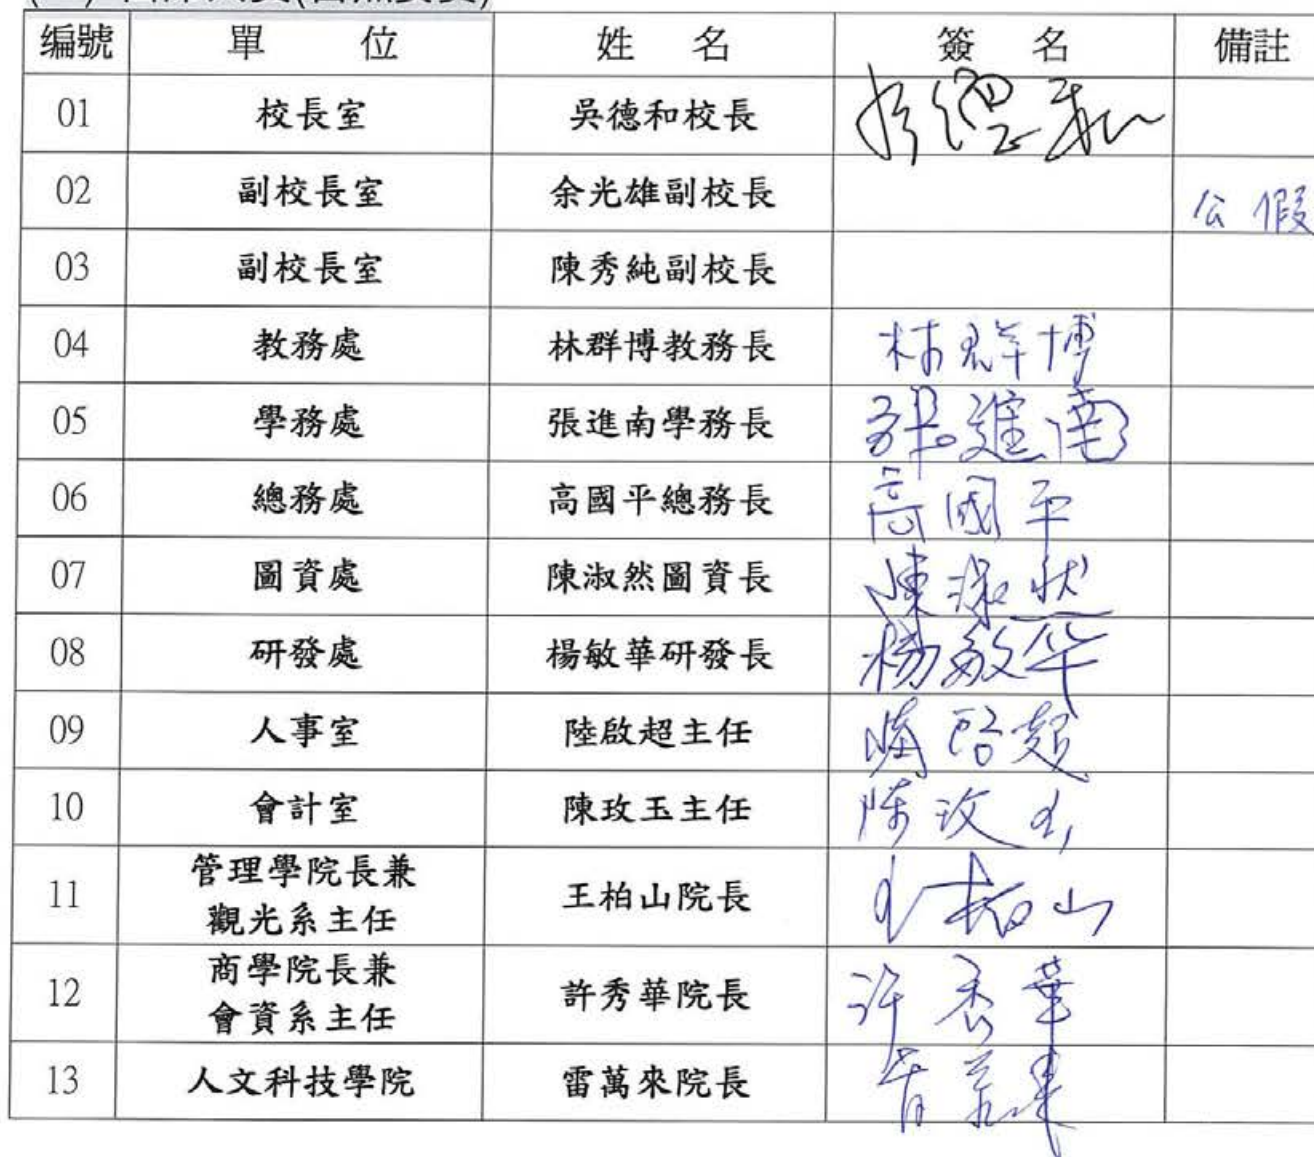 编號 單 位 姓 名 簽 名 備註
01 校長室 吳德和校長 吳德和
02 副校長室 余光雄副校長 公假
03 副校長室 陳秀純副校長
04 教務處 林群博教務長 林群博
05 學務處 張進南學務長 張進南
06 總務處 高國平總務長 高國平
07 圖資處 陳淑然圖資長 陳淑然
08 研發處 楊敏華研發長 楊敏华
09 人事室 陸啟超主任 陸啟超
10 會計室 陳玫玉主任 陳玫玉
11 管理學院長兼
觀光系主任 王柏山院長 王柏山
12 商學院長兼
會資系主任 許秀華院長 許秀華
13 人文科技學院 雷萬來院長